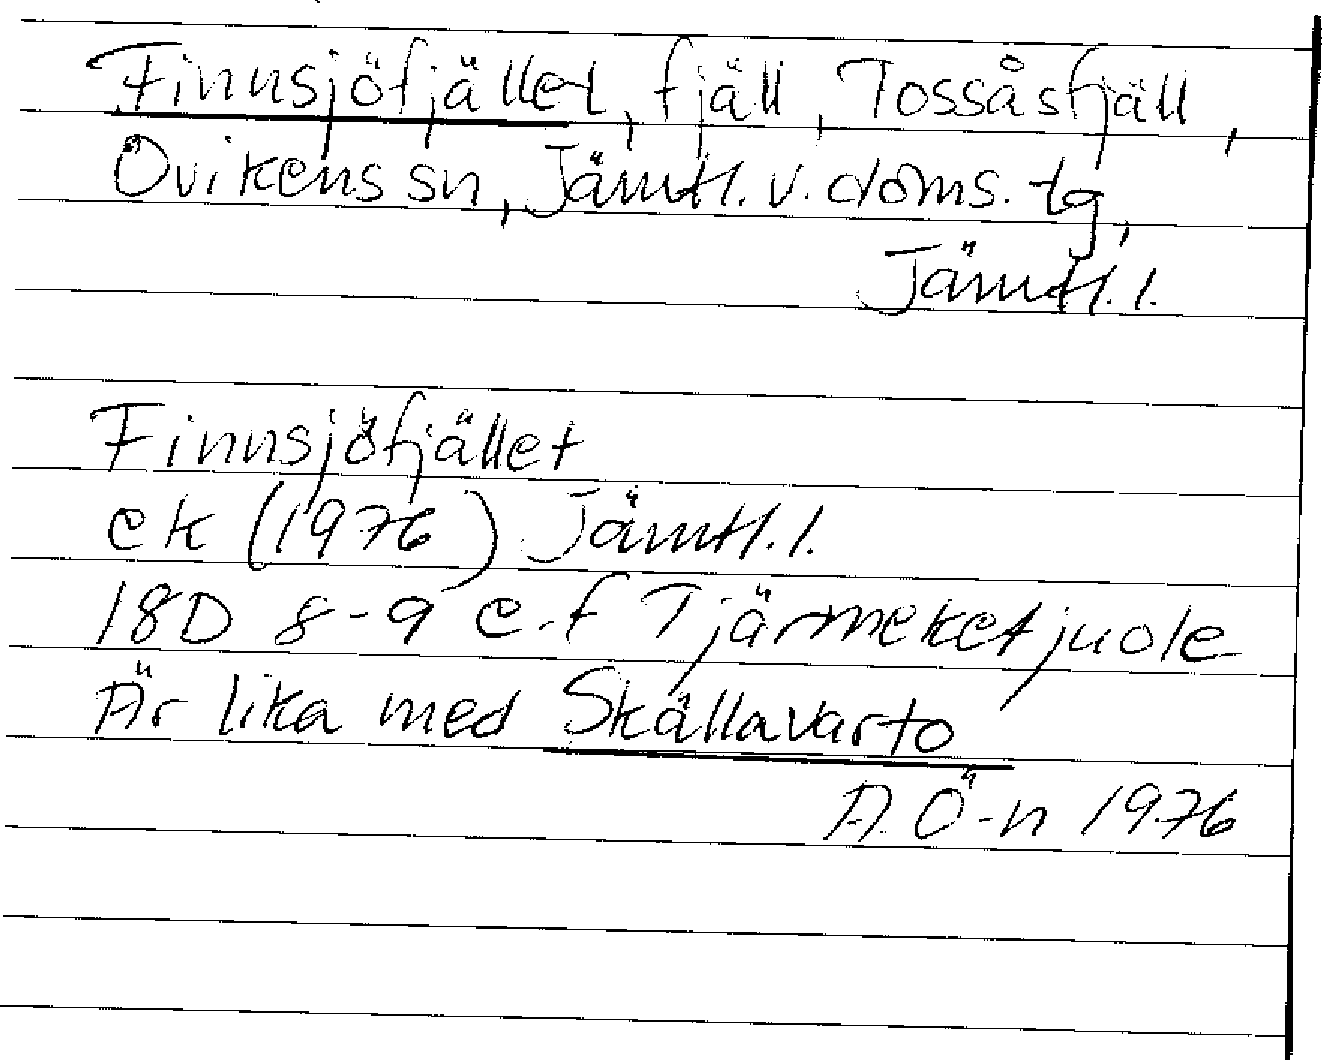 Finnsjöfjället, fjäll, Tossåsfjäll,
Ovikens sn, Jämtl. v. doms. tg,
Jämtl. l.
Finnsjöfjället
ek (1976) Jämtl. l.
18D 8-9 e-f Tjärmeketjuole
Är lika med Skällavarto
A. Ö-n 1976